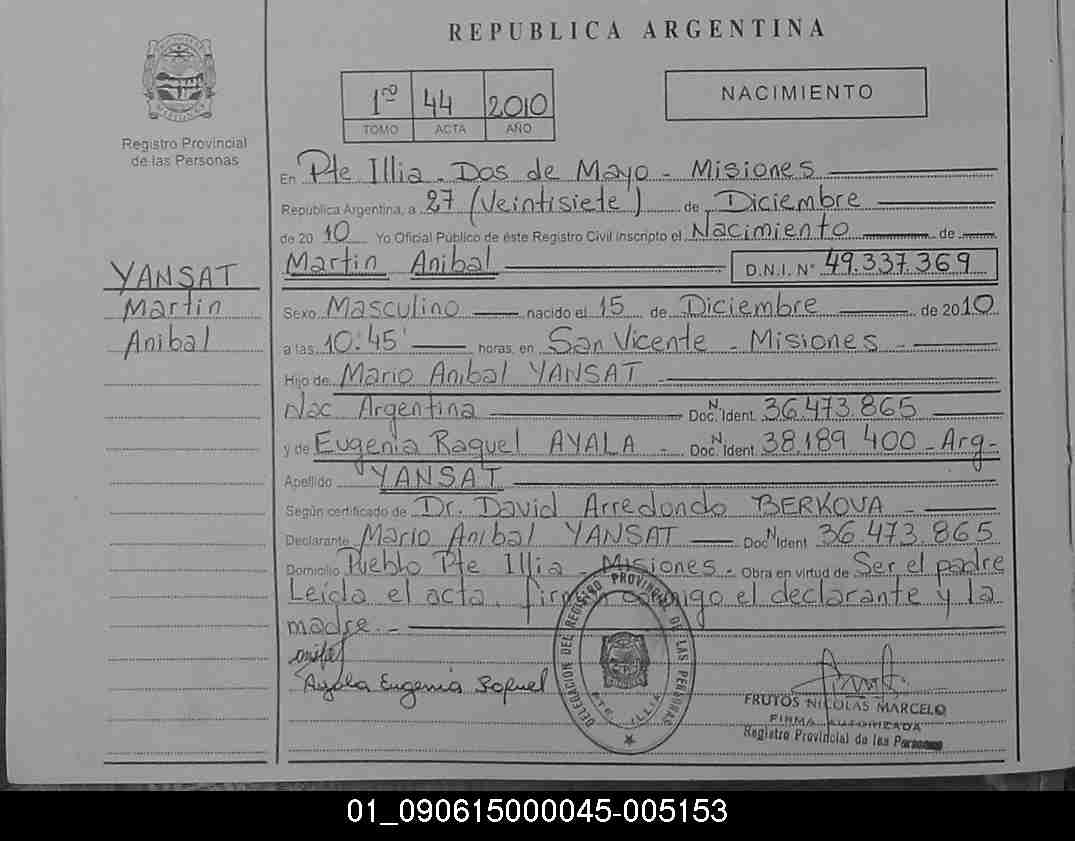 REPUBLICA ARGENTINA
Registro Provincial
de las Personas
1ro 44 2010
TOMO ACTA AÑO
NACIMIENTO
En Pte Illia - Dos de Mayo - Misiones
República Argentina, a 27 (Veintisiete) de Diciembre
de 2010 Yo Oficial Público de éste Registro Civil inscripto el Nacimiento de
Martin Anibal D.N.I. N° 49.337.369
YANSAT
Martin
Anibal
Sexo Masculino nacido el 15 de Diciembre de 2010
a las 10:45' horas, en San Vicente - Misiones -
Hijo de Mario Anibal YANSAT
Nac Argentina Doc. N Ident. 36.473.865
y de Eugenia Raquel AYALA - Doc. N Ident. 38.189 400 - Arg-
Apellido YANSAT
Según certificado de Dr. David Arredondo BERKOVA -
Declarante Mario Anibal YANSAT Doc N Ident 36.473.865
Domicilio Pueblo Pte Illia - Misiones - Obra en virtud de Ser el padre
Leída el acta, firman conmigo el declarante y la
madre. -
Ayala Eugenia Raquel
DELEGACION DEL REGISTRO PROVINCIAL DE LAS PERSONAS
PTE. ILLIA
FRUTOS NICOLAS MARCELO
FIRMA AUTORIZADA
Registro Provincial de las Personas
01_090615000045-005153